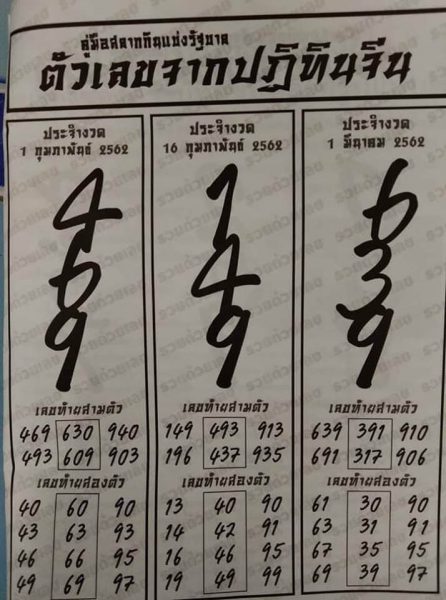 คู่มือสลากกินแบ่งรัฐบาล
ตัวเลขจากปฏิทินจีน
ประจำงวด
1 กุมภาพันธ์ 2562
4
6
9
เลขท้ายสามตัว
469 630 940
493 609 903
เลขท้ายสองตัว
40 60 90
43 63 93
46 66 95
49 69 97
ประจำงวด
16 กุมภาพันธ์ 2562
1
4
9
เลขท้ายสามตัว
149 493 913
196 437 935
เลขท้ายสองตัว
13 40 90
14 42 91
16 46 95
19 49 99
ประจำงวด
1 มีนาคม 2562
6
3
9
เลขท้ายสามตัว
639 391 910
691 317 906
เลขท้ายสองตัว
61 30 90
63 31 91
67 35 95
69 39 97